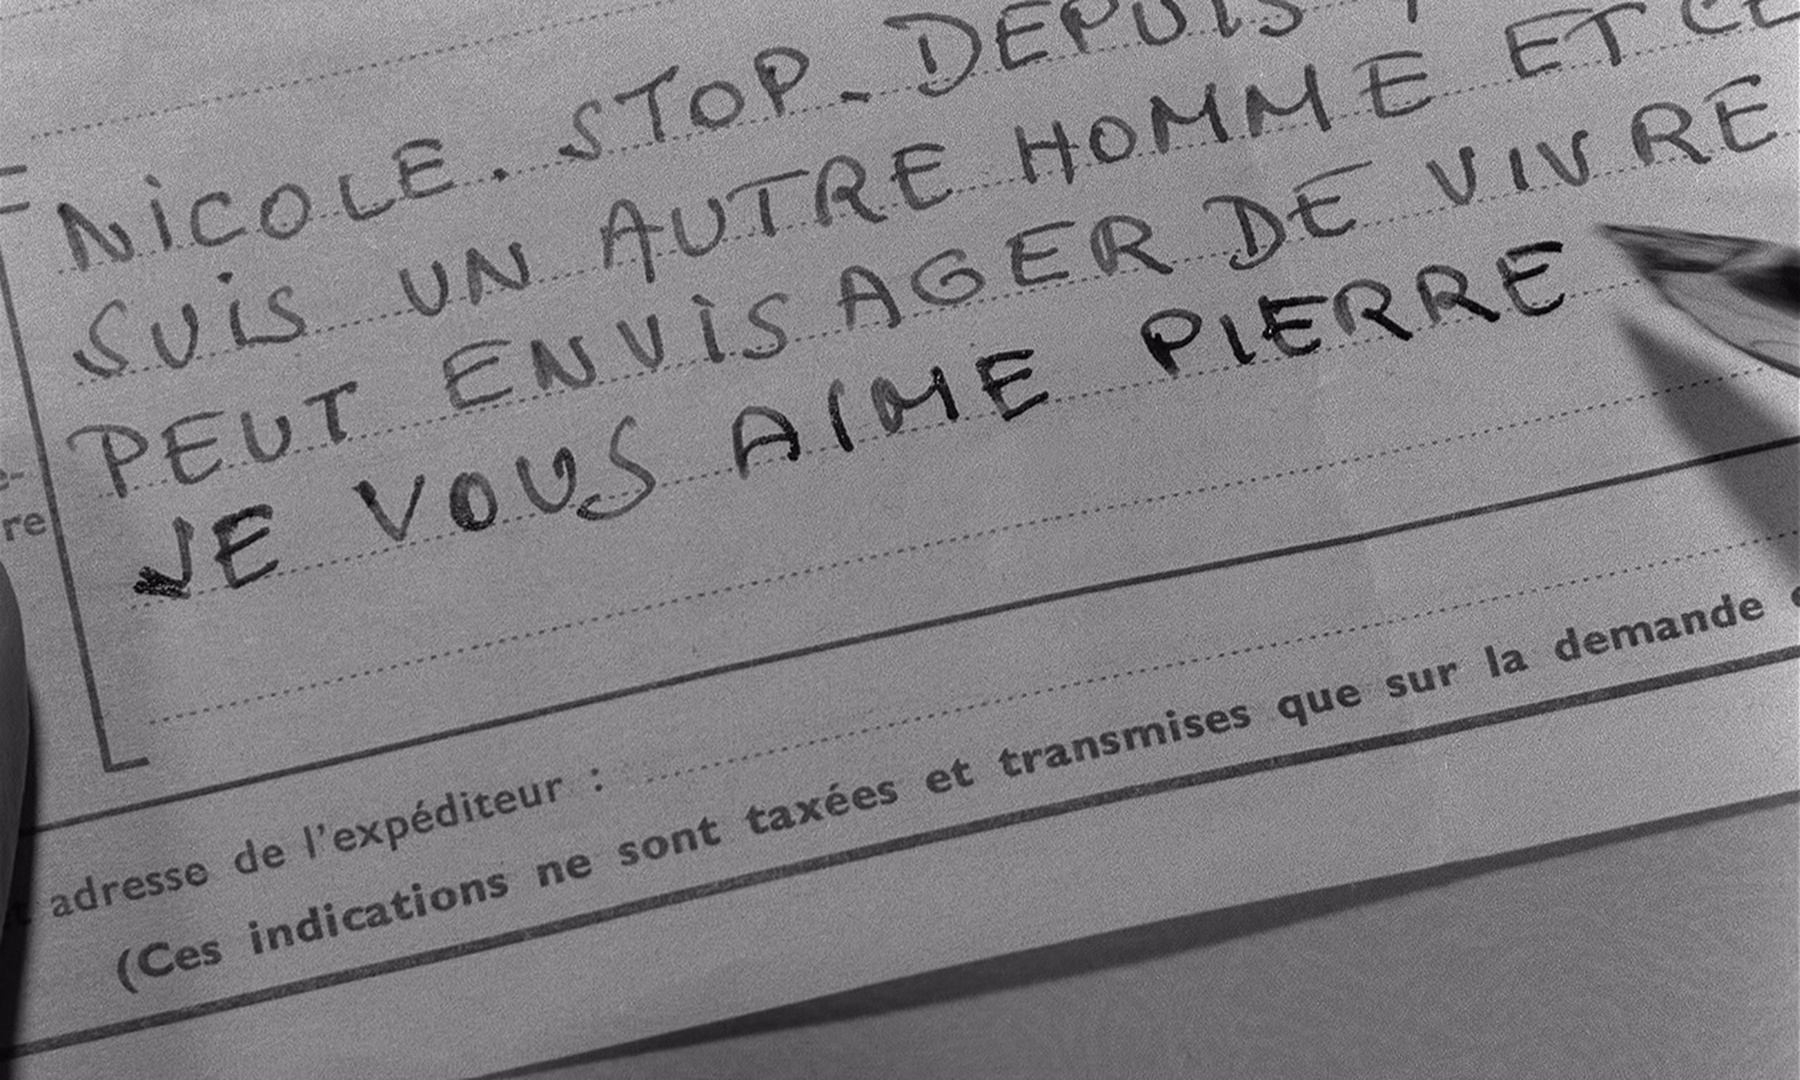 NICOLE. STOP- DEPUIS
SUIS UN AUTRE HOMME ET
PEUT ENVISAGER DE VIVRE
JE VOUS AIME PIERRE
re
adresse de l'expéditeur :
(Ces indications ne sont taxées et transmises que sur la demande